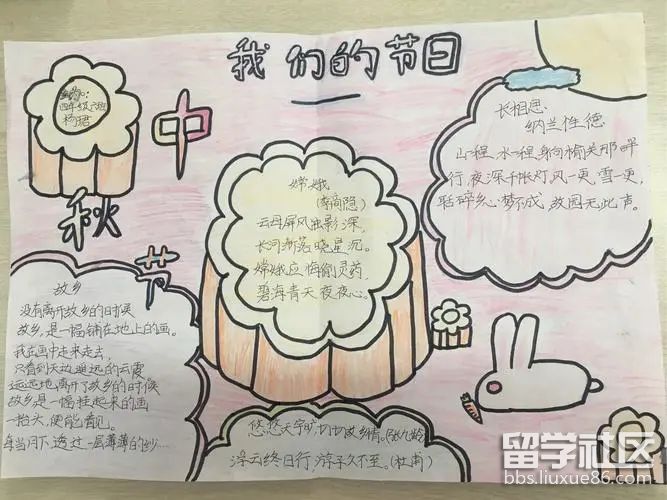 我们的节日
四年级六班
杨珺
中
秋
节
嫦娥
(李商隐)
云母屏风烛影深,
长河渐落晓星沉。
嫦娥应悔偷灵药,
碧海青天夜夜心。
长相思
纳兰性德
山一程,水一程,身向榆关那畔
行,夜深千帐灯,风一更,雪一更,
聒碎乡心梦不成,故园无此声。
故乡
没有离开故乡的时候
故乡,是一幅铺在地上的画。
我在画中走来走去,
只看到天边 的云霞
远远地离开了故乡的时候
故乡是一幅挂起来的画
一抬头,便能看见。
每当月下,透过一层薄薄的纱…
悠悠天宇旷,切切故乡情。(张九龄)
浮云终日行,游子久不至。(杜甫)
留学社区
bbs.liuxue86.com